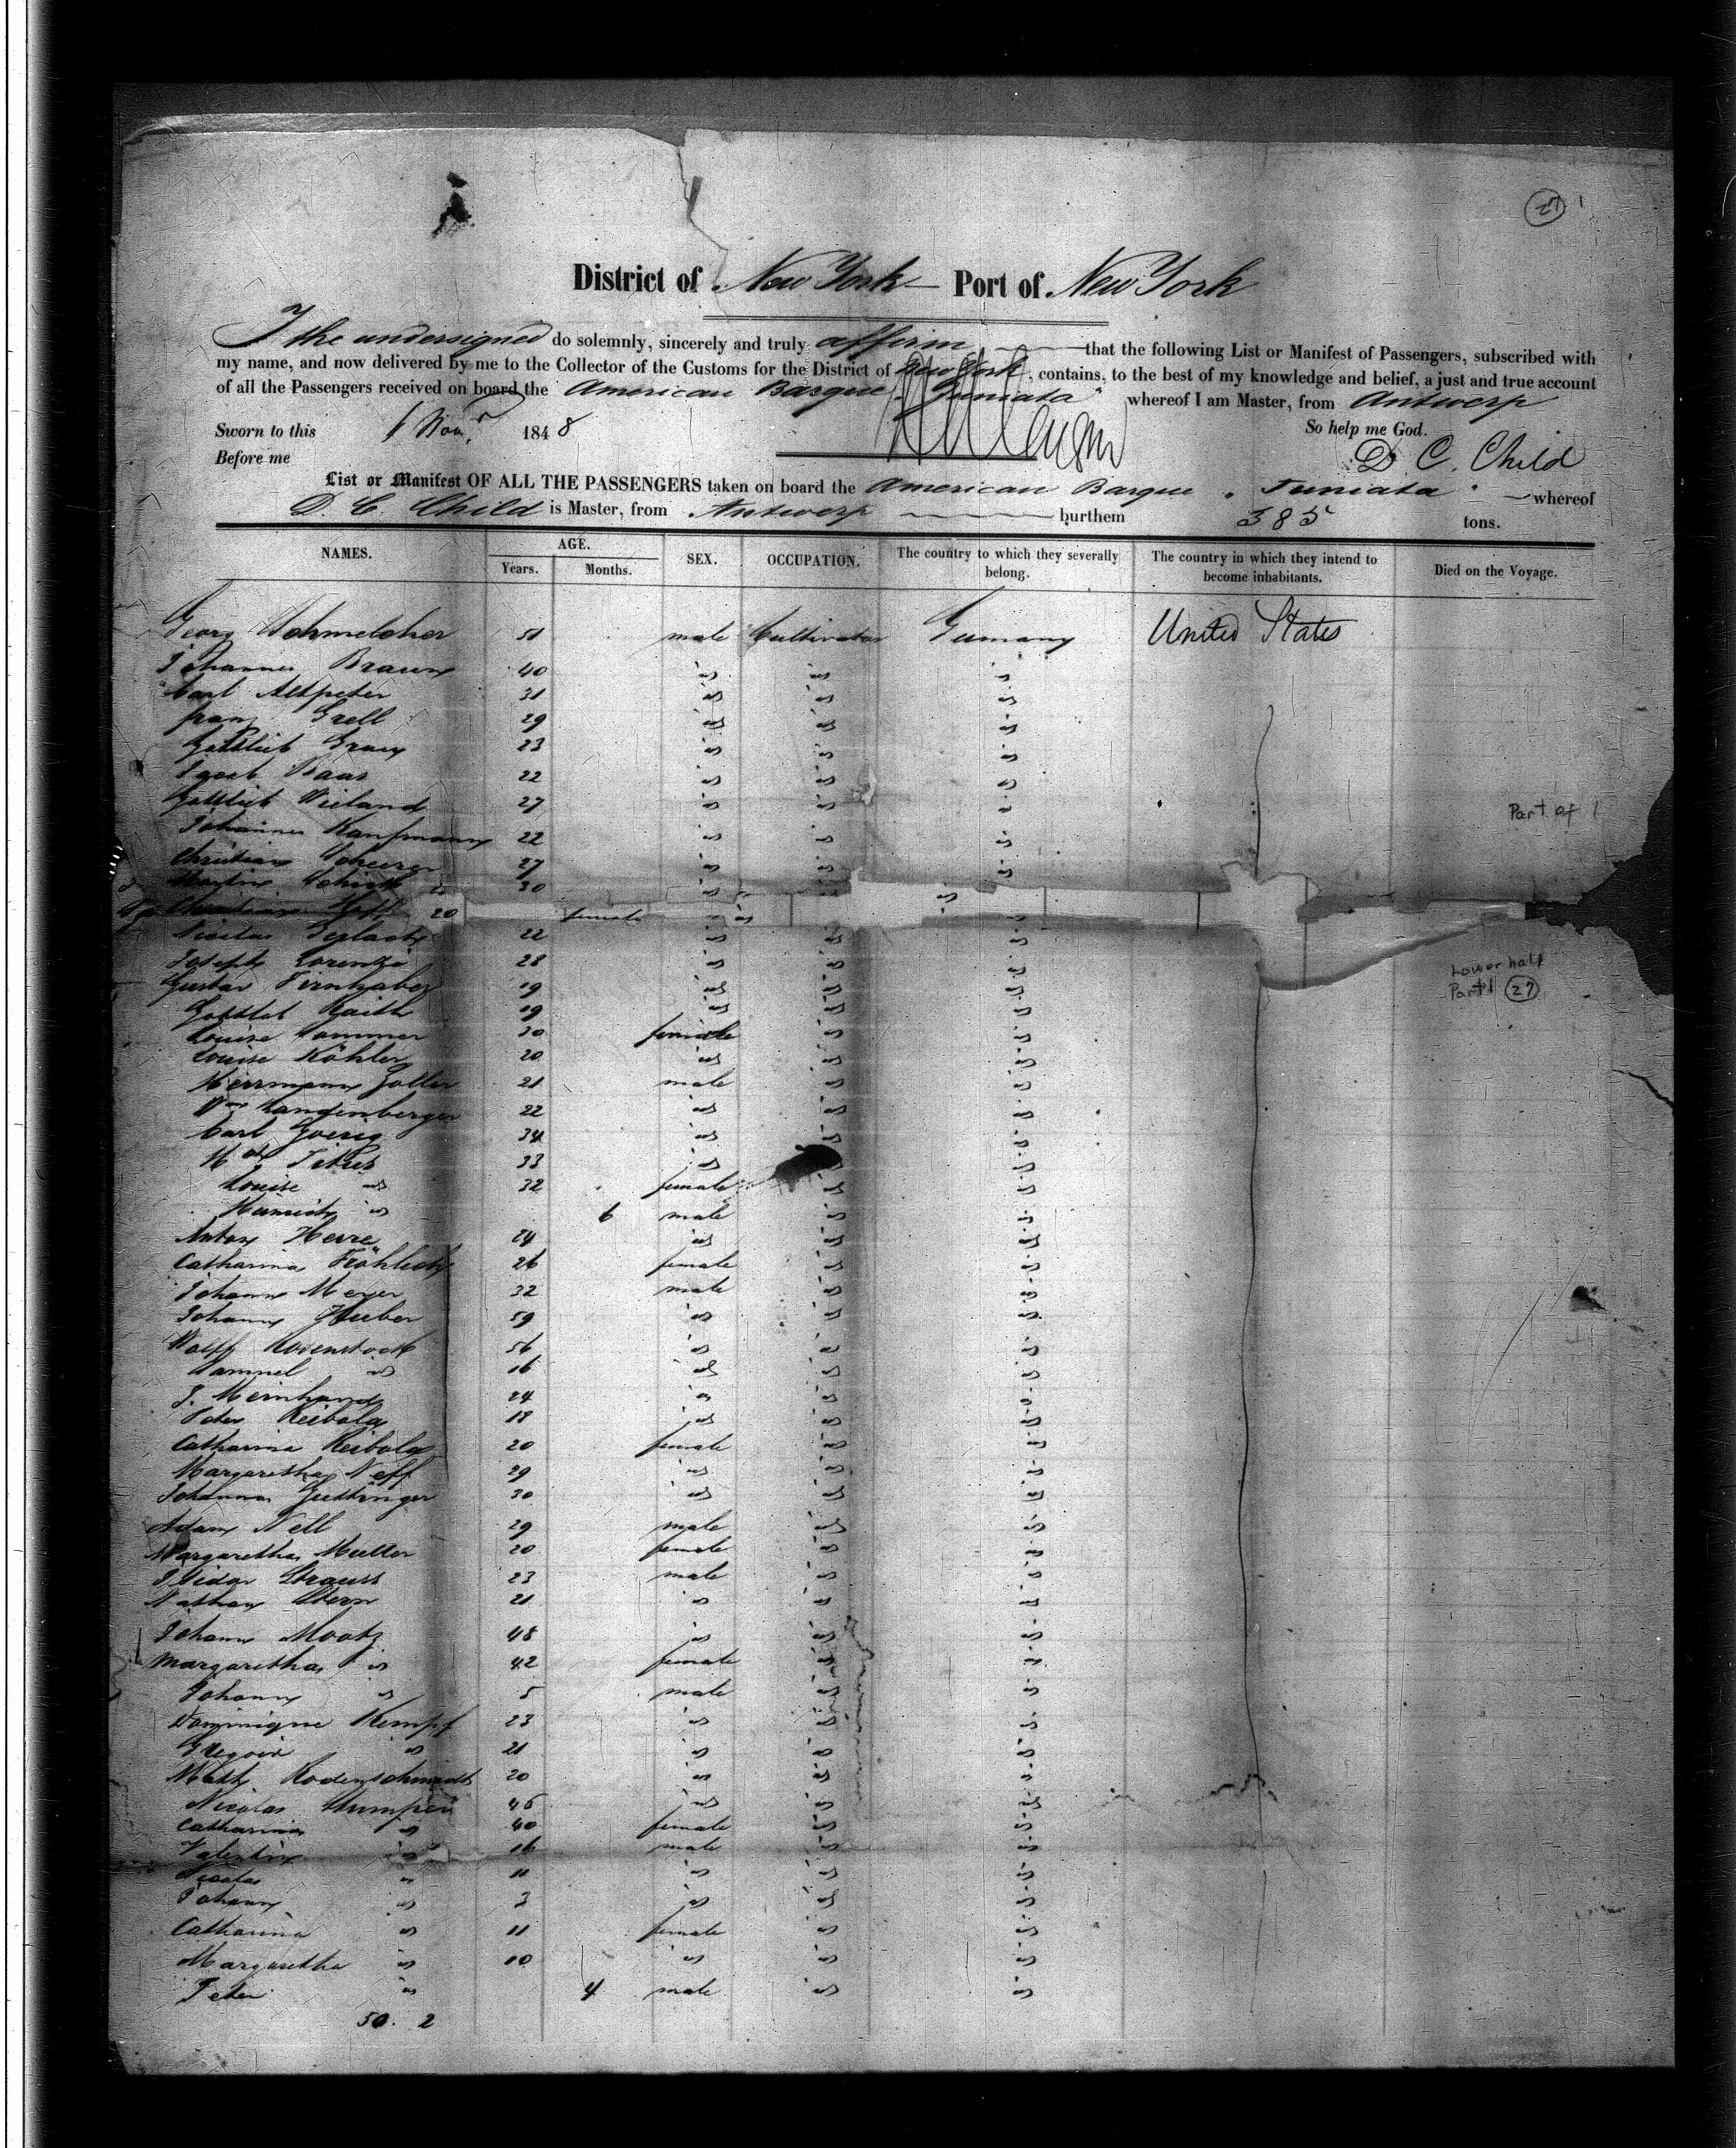 27 1
District of New York Port of New York
I the undersigned do solemnly, sincerely and truly affirm that the following List or Manifest of Passengers, subscribed with
my name, and now delivered by me to the Collector of the Customs for the District of New York, contains, to the best of my knowledge and belief, a just and true account
of all the Passengers received on board the American Barque "Juniata" whereof I am Master, from Antwerp
Sworn to this 1 Nov. 1848 So help me God.
Before me D. C. Child
List or Manifest OF ALL THE PASSENGERS taken on board the American Barque "Juniata" whereof
D. C. Child is Master, from Antwerp burthem 385 tons.
NAMES. AGE. Years. Months. SEX. OCCUPATION. The country to which they severally belong. The country in which they intend to become inhabitants. Died on the Voyage.
Georg Schmelcher 51 male Cultivator Germany United States
Johannes Braun 40 " " "
Carl Altpeter 31 " " "
Franz Grell 29 " " "
Gottlieb 23 " " "
Jacob 22 " " "
Gottlieb Wieland 27 " " "
Part of 1
Johannes Kaufmann 22 " " "
Christian 27 " " "
Martin 30 " " "
20 female " "
Nicolas Gerlach 22 " " "
Joseph Lorenzi 28 " " "
Lower half
Part 1 27
Gustav Firnhaber 19 " " "
Gottlob Raith 19 " " "
Louise Sommer 30 female " "
Louise Köhler 20 " " "
Herrmann Zoller 21 male " "
Wm Landenberger 22 " " "
Carl Goerig 34 " " "
33 " " "
Louise " 32 female " "
Heinrich " 6 male " "
Anton Herre 24 " " "
Catharina Fröhlich 26 female " "
Johann Meyer 32 male " "
Johann Huber 59 " " "
Wolff Rosenstock 56 " " "
Samuel " 16 " " "
J. Meinhard 24 " " "
Peter Reibold 18 " " "
Catharina Reibold 20 female " "
Margaretha Neff 29 " " "
Johanna Guttinger 30 " " "
Adam Nell 29 male " "
Margaretha Muller 20 female " "
Isidor Strauss 23 male " "
Nathan Stern 21 " " "
Johann Mootz 48 " " "
Margaretha " 42 female " "
Johann " 5 male " "
Dominique Kempf 23 " " "
Gregoir " 21 " " "
Math. Rodenschmidt 20 " " "
Nicolas 45 " " "
Catharina " 40 female " "
Valentin " 16 male " "
Nicolas " 11 " " "
Johann " 3 " " "
Catharina " 11 female " "
Margaretha " 10 " " "
Peter " 4 male " "
50. 2